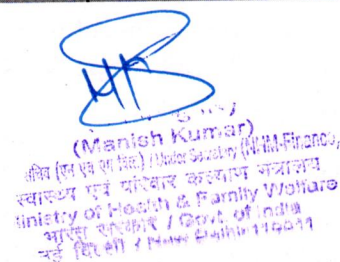 (Manish Kumar)
(एन एच एम वित्त) / Under Secretary (NHM-Finance)
स्वास्थ्य एवं परिवार कल्याण मंत्रालय
Ministry of Health & Family Welfare
भारत सरकार / Govt. of India
नई दिल्ली / New Delhi-110011